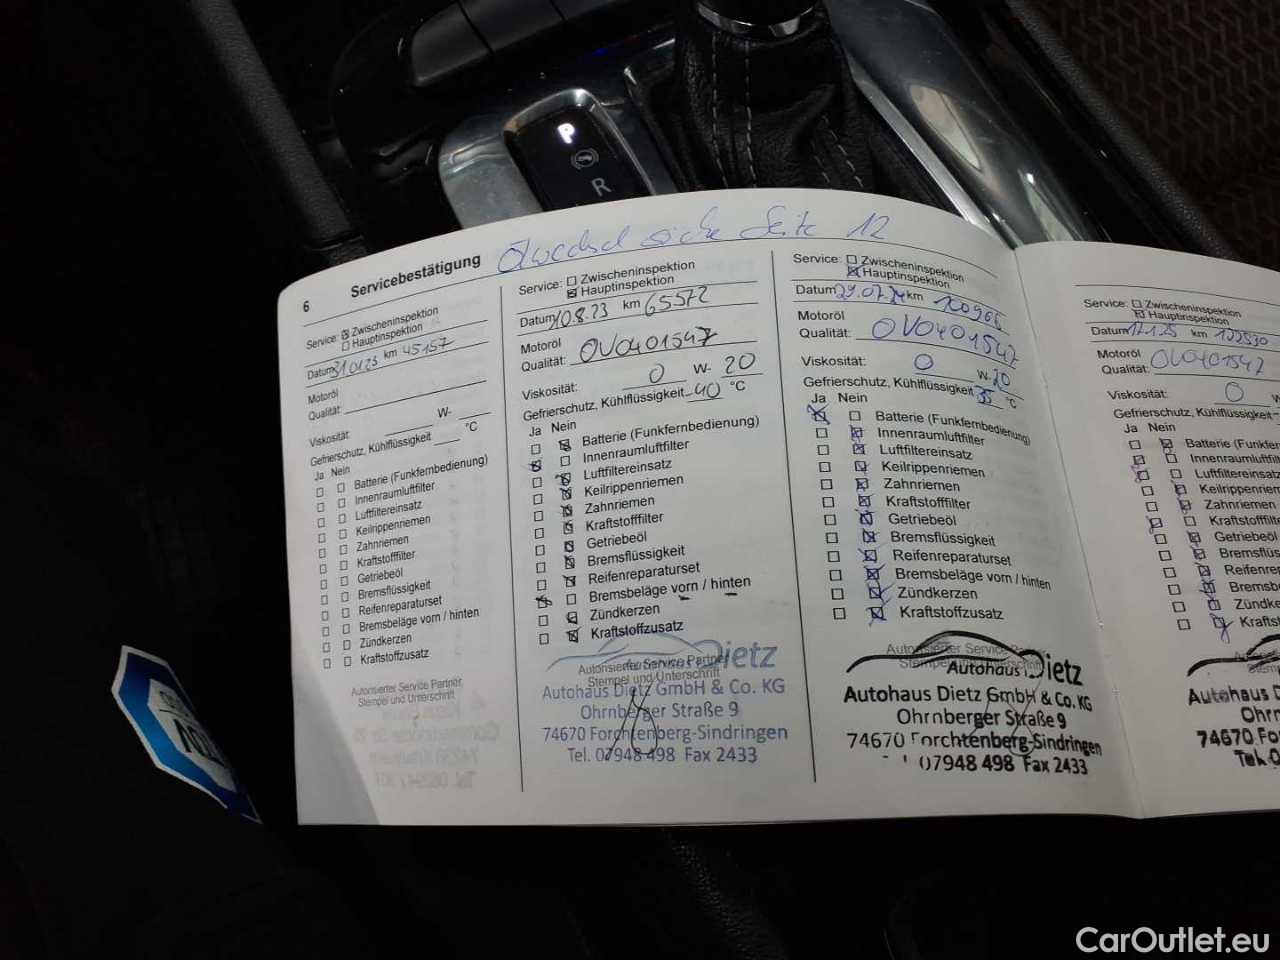 P
R
6 Servicebestätigung Ölwechsel siehe Seite 12
Service: Zwischeninspektion
Hauptinspektion
Datum 310123 km 45157
Motoröl
Qualität:
Viskosität: W-
Gefrierschutz, Kühlflüssigkeit °C
Ja Nein
Batterie (Funkfernbedienung)
Innenraumluftfilter
Luftfiltereinsatz
Keilrippenriemen
Zahnriemen
Kraftstofffilter
Getriebeöl
Bremsflüssigkeit
Reifenreparaturset
Bremsbeläge vorn / hinten
Zündkerzen
Kraftstoffzusatz
Autorisierter Service Partner
Stempel und Unterschrift
Service: Zwischeninspektion
Hauptinspektion
Datum 10.8.23 km 65572
Motoröl
Qualität: OV0401547
Viskosität: 0 W- 20
Gefrierschutz, Kühlflüssigkeit -40 °C
Ja Nein
Batterie (Funkfernbedienung)
Innenraumluftfilter
Luftfiltereinsatz
Keilrippenriemen
Zahnriemen
Kraftstofffilter
Getriebeöl
Bremsflüssigkeit
Reifenreparaturset
Bremsbeläge vorn / hinten
Zündkerzen
Kraftstoffzusatz
Autorisierter Service Partner
Stempel und Unterschrift
Autohaus Dietz
Autohaus Dietz GmbH & Co. KG
Ohrnberger Straße 9
74670 Forchtenberg-Sindringen
Tel. 07948 498 Fax 2433
Service: Zwischeninspektion
Hauptinspektion
Datum 29.07.24 km 100966
Motoröl
Qualität: OV0401547
Viskosität: 0 W- 20
Gefrierschutz, Kühlflüssigkeit 35 °C
Ja Nein
Batterie (Funkfernbedienung)
Innenraumluftfilter
Luftfiltereinsatz
Keilrippenriemen
Zahnriemen
Kraftstofffilter
Getriebeöl
Bremsflüssigkeit
Reifenreparaturset
Bremsbeläge vorn / hinten
Zündkerzen
Kraftstoffzusatz
Autorisierter Service Partner
Stempel und Unterschrift
Autohaus Dietz
Autohaus Dietz GmbH & Co. KG
Ohrnberger Straße 9
74670 Forchtenberg-Sindringen
07948 498 Fax 2433
Service: Zwischeninspektion
Hauptinspektion
Datum 17.1.25 km 122530
Motoröl
Qualität: OV0401547
Viskosität: 0 W
Gefrierschutz, Kühlflüssigkeit
Ja Nein
Batterie (Funkfer
Innenraumluftfil
Luftfiltereinsatz
Keilrippenriem
Zahnriemen
Kraftstofffilter
Getriebeöl
Bremsflüs
Reifenrepar
Bremsb
Zündke
Kraftst
Autohaus D
Ohrn
74670 Fo
Tel. 0
CarOutlet.eu